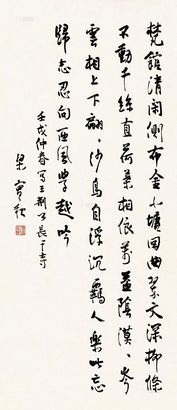 梵館清閒側布金小塘回曲翠文深柳條
不動千絲直荷葉相依萬蓋陰漠々岑
雲相上下翩々沙鳥自浮沉羈人樂此忘
歸思忍向西風學越吟
壬戌仲春寫王荊公長干寺
梁實秋